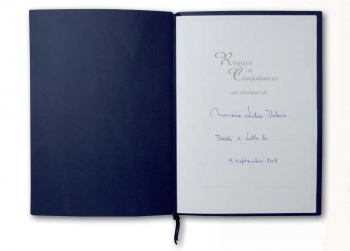 Registre
de
Condoléances
aux obsèques de
Monsieur Dubois
Décédé à Lille le
13 Septembre